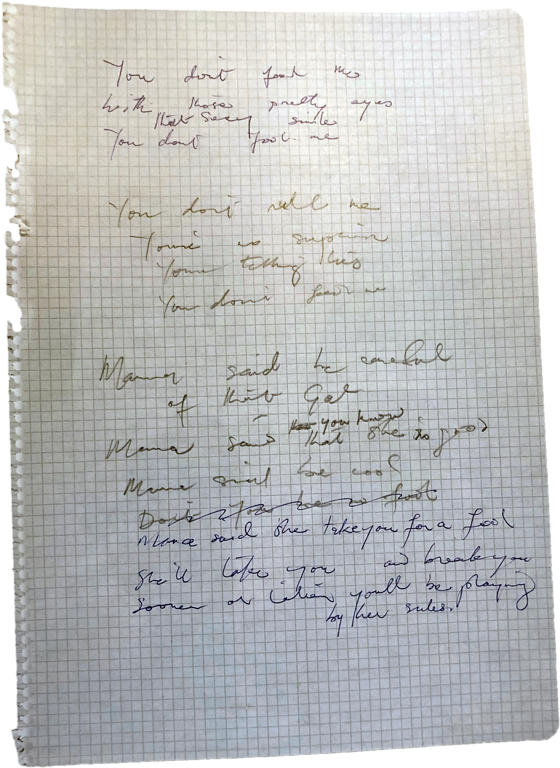 You don't fool me
with those pretty eyes
that sexy smile
You don't fool me
You don't rule me
You're no surprise
You're telling lies
You don't fool me
Mama said be careful
of that Gal
Mama said you know
that she is no good
Mama said be cool
Don't you be no fool
Mama said she take you for a fool
She'll take you and break you
Sooner or later you'll be playing
by her rules.